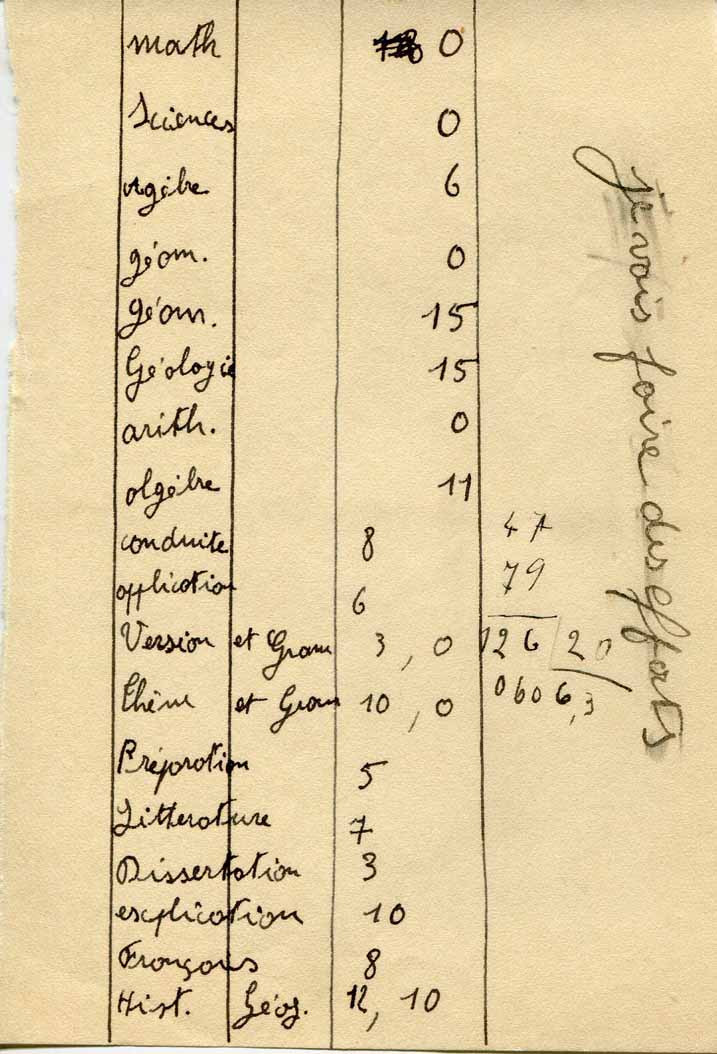 math 0
Sciences 0
algèbre 6
géom. 0
géom. 15
Géologie 15
arith. 0
algèbre 11
conduite 8
application 6
Version et Gram 3, 0
Thème et Gram 10, 0
Préparation 5
Litterature 7
Dissertation 3
explication 10
Français 8
Hist. Géog. 12, 10
47
79
126 20
060 6,3
je vais faire des efforts